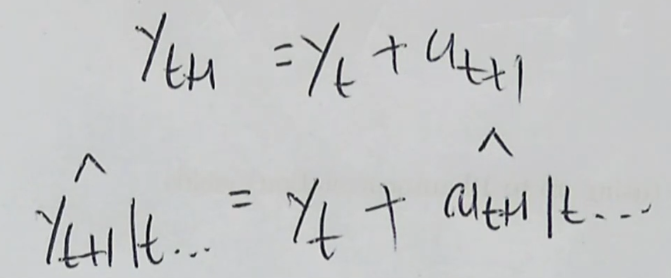 y_{t+1} = y_t + u_{t+1}
\hat{y}_{t+1|t...} = y_t + \hat{u}_{t+1|t...}